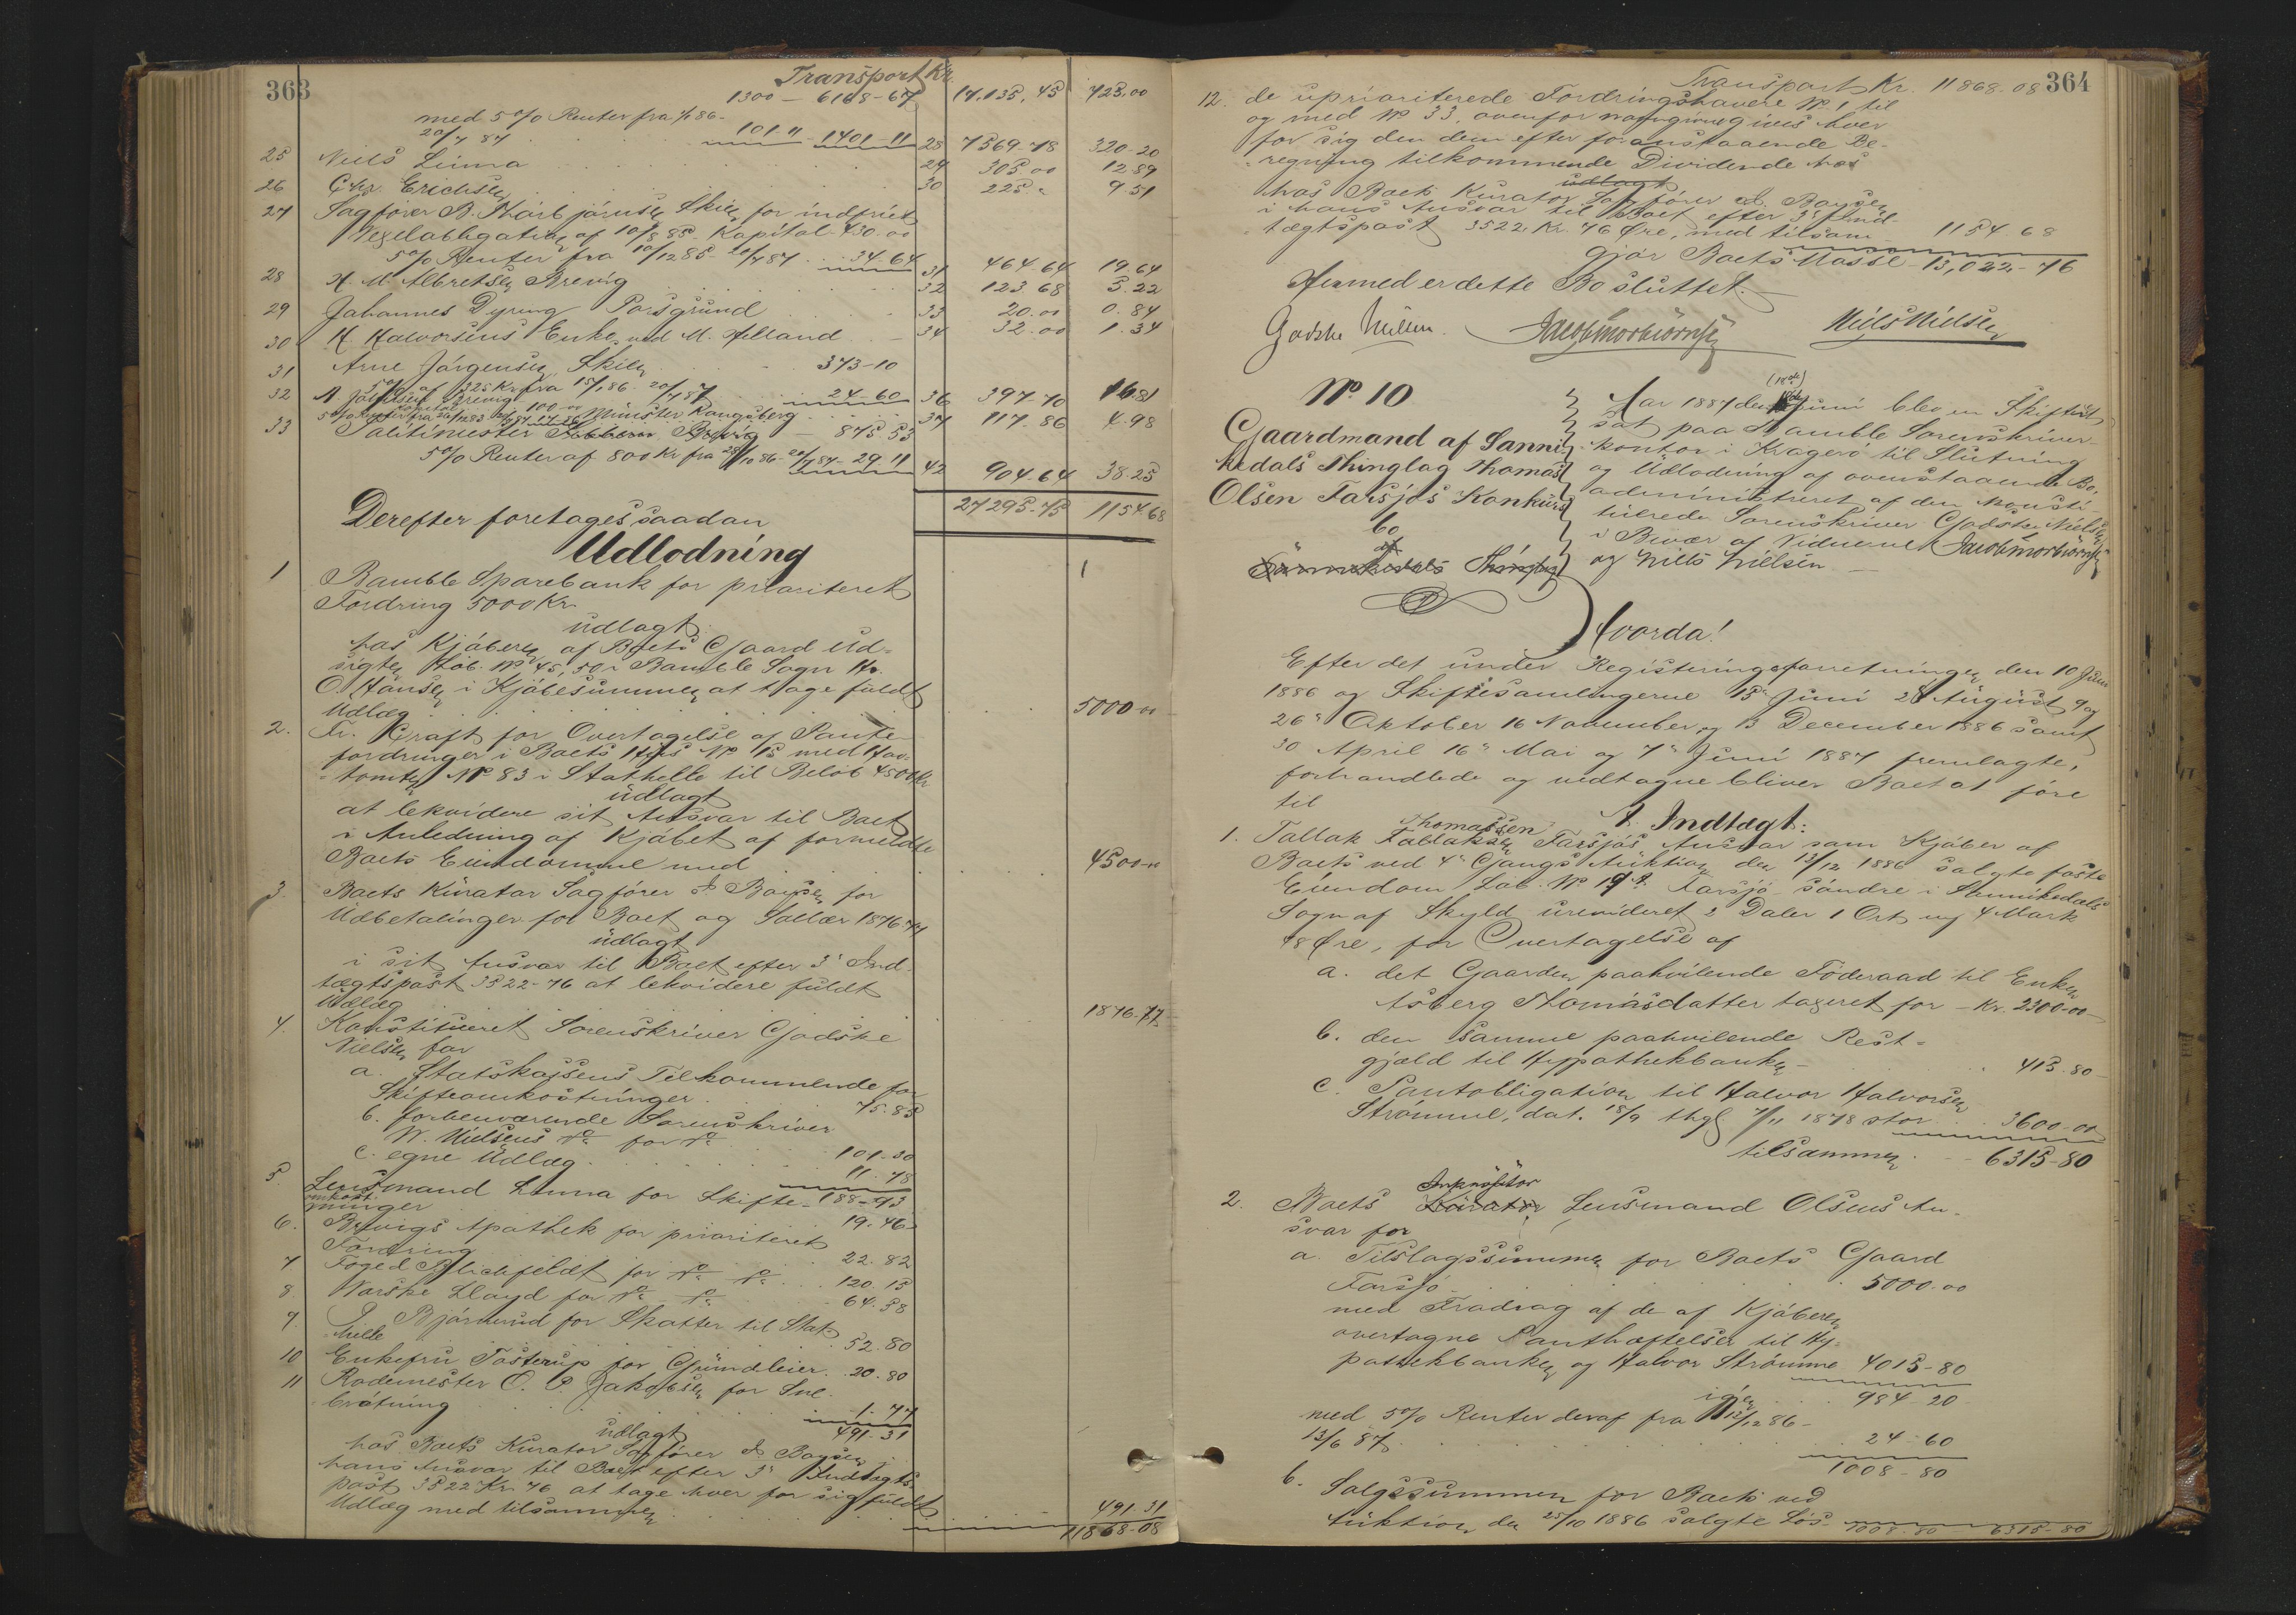 363
Transport Kr.
1300 — 6168-67 14,135,45 723,00
med 5% Renter fra 1/1 86-
20/4 87 101 11 1401-11 28 7569-78 320-20
25 Niels Linna 29 305 00 12 89
26 Chr. Erichsen 30 225 " 9 51
27 Sagfører B. Thorbjørnsen Skien for indfriet
Vexelobligation af 10/8 85 Kapital 430.00
5% Renter fra 10/12 85 - 20/7 87 34.64 31 464.64 19.64
28 H. M. Albretsen Brevig 32 123 68 5.22
29 Johannes Dyring Porsgrund 33 20.00 0.84
30 H. Halvorsens Enke ved M. Helland 34 32.00 1.34
31 Arne Jørgensen, Skien 373-10
5% af 325 Kr. fra 15/1 86 - 20/7 87 24-60 36 397-70 16.81
32 Brevig 100-00 Münster Kongsberg 37 117-86 4.98
33 Politimester Brevig — 875 53
5% Renter af 800 Kr fra 28/10 86 - 20/7 87 - 29 11 42 904.64 38.25
27295-75 1154.68
Derefter foretages saadan
Udlodning
1 Bamble Sparebank for prioriteret
Fordring 5000 Kr.
udlagt
hos Kjøberen af Boets Gaard Ud-
sigten Løb. No 45, 50 i Bamble Sogn Hr.
O. Hansen i Kjøbesummen at tage fuldt
Udlæg 5000 "
2. Fr. Craft for Overtagelse af Pante-
fordringer i Boets Hus No 15 med Hav-
tomten No 83 i Stathelle til Beløb 4500 Kr
udlagt
at lekvidere sit Ansvar til Boet
i Anledning af Kjøbet af formeldte
Boets Eiendomme med 4500-"
3. Boets Kurator Sagfører J. Boysen for
Udbetalinger for Boet og Sallær 1876.77
udlagt
i sit Ansvar til Boet efter 3' Ind-
tægtspost 3522-76 at lekvidere fuldt
Udlæg 1876.77
4. Konstitueret Sorenskriver Godske
Nielsen for
a. Statskassens Tilkommende for
Skifteomkostninger 75.85
b. forhenværende Sorenskriver
W. Nielsens do for do 101-30
c. egne Udlæg 11.78
188-93
5. Lensmand Linna for Skifte-
omkost-
ninger 19.46
6. Brevigs Apothek for prioriteret
Fordring 22.82
7 Foged Blichfeldt for do do 120 15
8. Norske Lloyd for do do 64.58
9. P. Bjørnerud for Skatter til Stat-
helle 52.80
10 Enkefru Tosterup for Grundleier 20.80
11 Rodemester O. P. Jakobsen for Sne-
brøtning 1.77
491-31
udlagt
hos Boets Kurator Sagfører J. Boysen i
hans Ansvar til Boet efter 3' Indtægts-
post 3522 Kr. 76 at tage hver for sig fuldt
Udlæg med tilsammen 491.31
11868-08
364
Transport Kr. 11868.08
12. de uprioriterede Fordringshavere No 1 til
og med No 33, ovenfor gives hver
for sig den dem efter foranstaaende Be-
regning tilkommende Dividende hos
udlagt
hos Boets Kurator Sagfører J. Boysen
i hans Ansvar til Boet efter 3' Ind-
tægtspost 3522 Kr. 76 Øre, med tilsam- 1154 68
gjør Boets Masse 13,022-76
Hermed er dette Bo sluttet.
Godske Nielsen. Jacob Morbiörnsen Niels Nielsen
No. 10
Gaardmand af Sanni-
kedals Thinglag Thomas
Olsen Farsjøs Konkurs
bo
af
Sannikedals Thinglag
Aar 1887 den (18de) Juni blev en Skifteret
sat paa Bamble Sorenskriver-
kontor i Kragerø til Slutning
og Udlodning af ovenstaaende Bo,
administreret af den konsti-
tuerede Sorenskriver Godske Nielsen
i Overvær af Vidnerne Jacob Morbiörnsen
og Niels Nielsen —
Hvorda!
Efter det under Registreringsforretningen den 10 Juni
1886 og Skiftesamlingerne 15' Juni 28 August 9 og
26' Oktober 16 November og 13 December 1886 samt
30 April 16' Mai og 7' Juni 1887 fremlagte,
forhandlede og vedtagne bliver Boet at føre
til
A. Indtægt:
1. Tallak Thomassen Tallaksen Farsjøs Ansvar som Kjøber af
Boets ved 4' Gangs Auktion den 13/12 1886 solgte faste
Eiendom Løb. No 19 a. Farsjø søndre i Sannikedals
Sogn af Skyld urevideret 2 Daler 1 Ort og 4 Mark
78 Øre, for Overtagelse af
a. det Gaarden paahvilende Føderaad til Enken
Asberg Thomasdatter taxeret for - Kr. 2300-00
b. den samme paahvilende Rest-
gjæld til Hypothekbanken - 415.80
c. Pantobligation til Halvor Halvorsen
Strømme, dat. 18/9 thgl. 7/11 1878 stor 3600-00
tilsammen 6315-80
2. Boets Inkvisitor Kurator Lensmand Olsens An-
svar for
a. Tilslagssummen for Boets Gaard
Farsjø 5000.00
med Fradrag af de af Kjøberen
overtagne Panthæftelser til Hy-
pothekbanken og Halvor Strømme 4015-80
igjen 984-20
med 5% Renter deraf fra 13/12 86 -
13/6 87 24-60
1008-80
b. Salgssummen for Boets ved
Auktion den 25/10 1886 solgte Løs- 1008.80 6315-80